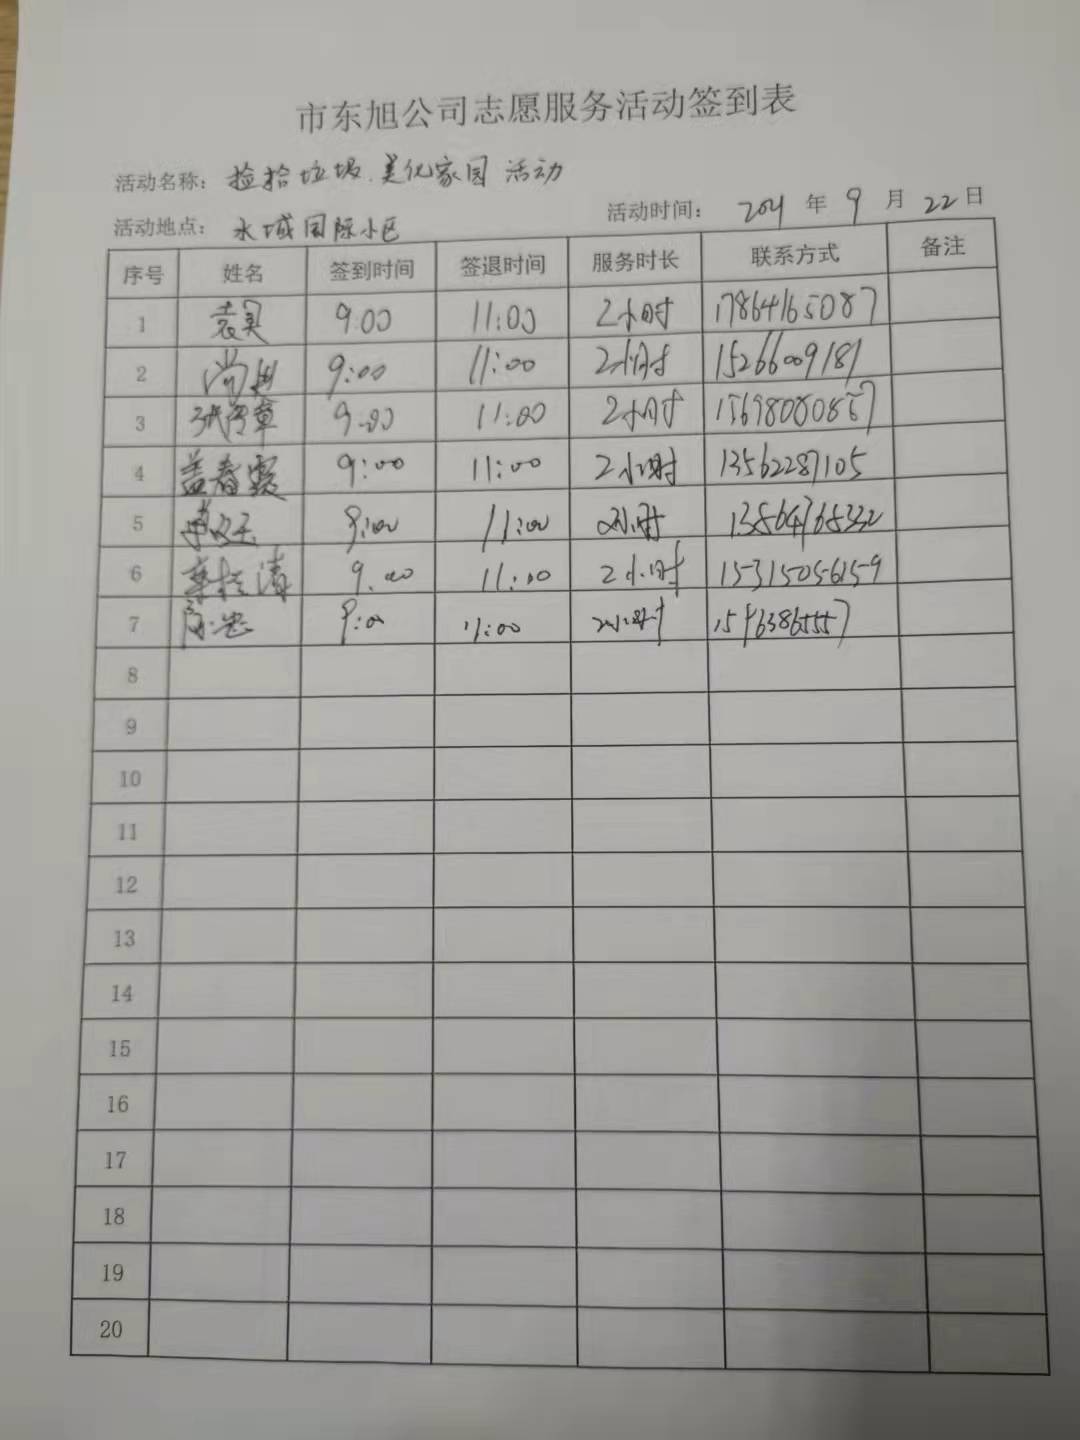 市东旭公司志愿服务活动签到表
活动名称: 捡拾垃圾.美化家园 活动
活动地点: 水城国际小区 活动时间: 年 9 月 22 日
序号 姓名 签到时间 签退时间 服务时长 联系方式 备注
1 9:00 11:00 2小时 17864165087
2 9:00 11:00 2小时 15266009181
3 9:00 11:00 2小时
4 盖春霞 9:00 11:00 2小时 13562287105
5 9:00 11:00 2小时
6 9:00 11:00 2小时 15315056159
7 9:00 11:00 2小时
8
9
10
11
12
13
14
15
16
17
18
19
20